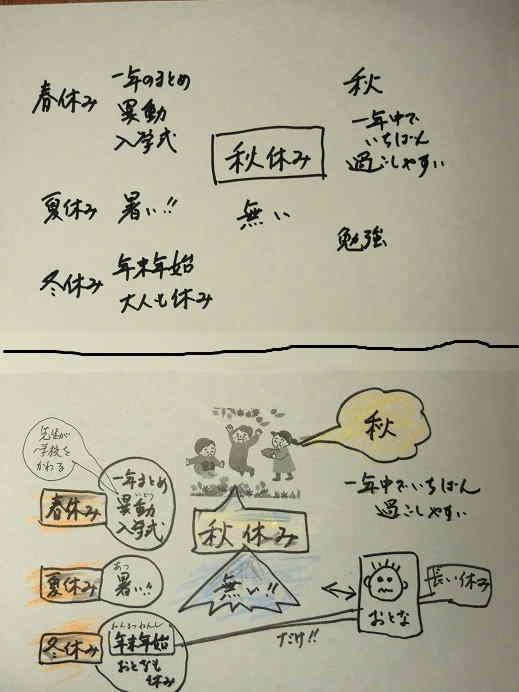 春休み
一年のまとめ
異動
入学式
秋休み
無い
秋
一年中で
いちばん
過ごしやすい
夏休み
暑い!!
勉強
冬休み
年末年始
大人も休み
先生が
学校を
かわる
春休み
一年まとめ
異動
入学式
秋
秋休み
一年中でいちばん
過ごしやすい
夏休み
あつ
暑い!!
無い!!
おとな
長い休み
冬休み
年末年始
おとなも
休み
だけ!!